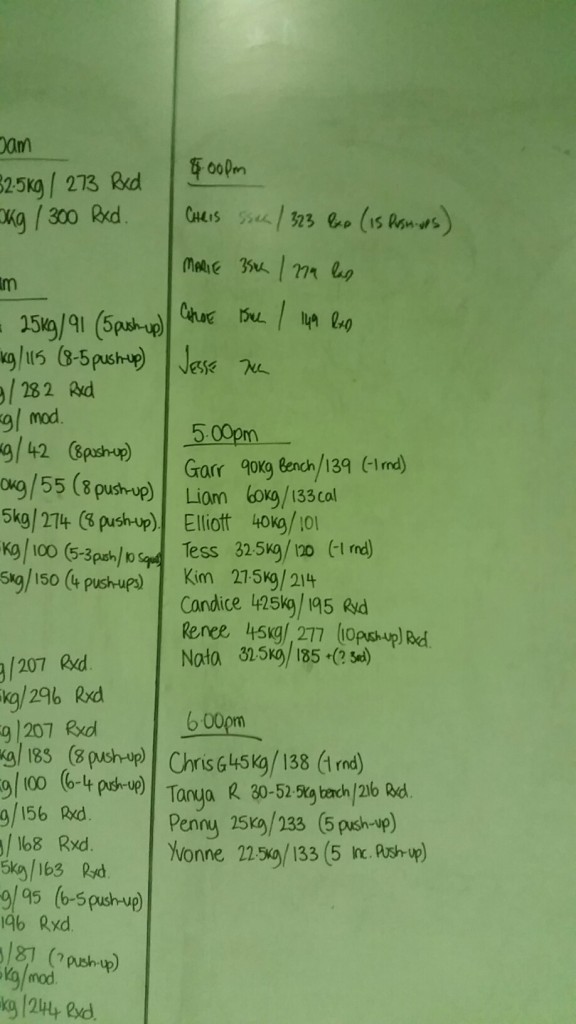 0am
32.5kg/ 273 Rxd
0kg / 300 Rxd.
am
25kg/91 (5push-up)
kg/115 (8-5push-up)
g/ 282 Rxd
kg/ mod.
g/42 (8push-up)
0kg/55 (8 push-up)
5kg/274 (8 push-up).
kg/100 (5-3push/10 squat
5kg/150 (4 push-ups)
g/207 Rxd.
kg/296 Rxd
g/207 Rxd
kg/183 (8 push-up)
g/100 (6-4 push-up)
g/156 Rxd.
/168 Rxd.
5kg/163 Rxd.
g/95 (6-5push-up)
196 Rxd.
g/87 (? push-up)
kg/mod.
kg/244 Rxd.
:00pm
CHRIS / 323 RXD (15 PUSH-UPS)
MARIE 35KG / 279 RXD
CHLOE 15KG / 149 RXD
JESSE
5:00pm
Garr 90kg Bench/139 (-1 rnd)
Liam 60kg/133cal
Elliott 40kg/101
Tess 32.5kg/120 (-1 rnd)
Kim 27.5kg/214
Candice 425kg/195 Rxd
Renee 45kg/ 277 (10push-up) Rxd
Nata 32.5kg/185 +(? 3rd)
6:00pm
Chris G 45kg/138 (-1 rnd)
Tanya R 30-52.5kg bench/216 Rxd.
Penny 25kg/233 (5 push-up)
Yvonne 22.5kg/133 (5 Inc. Push-up)